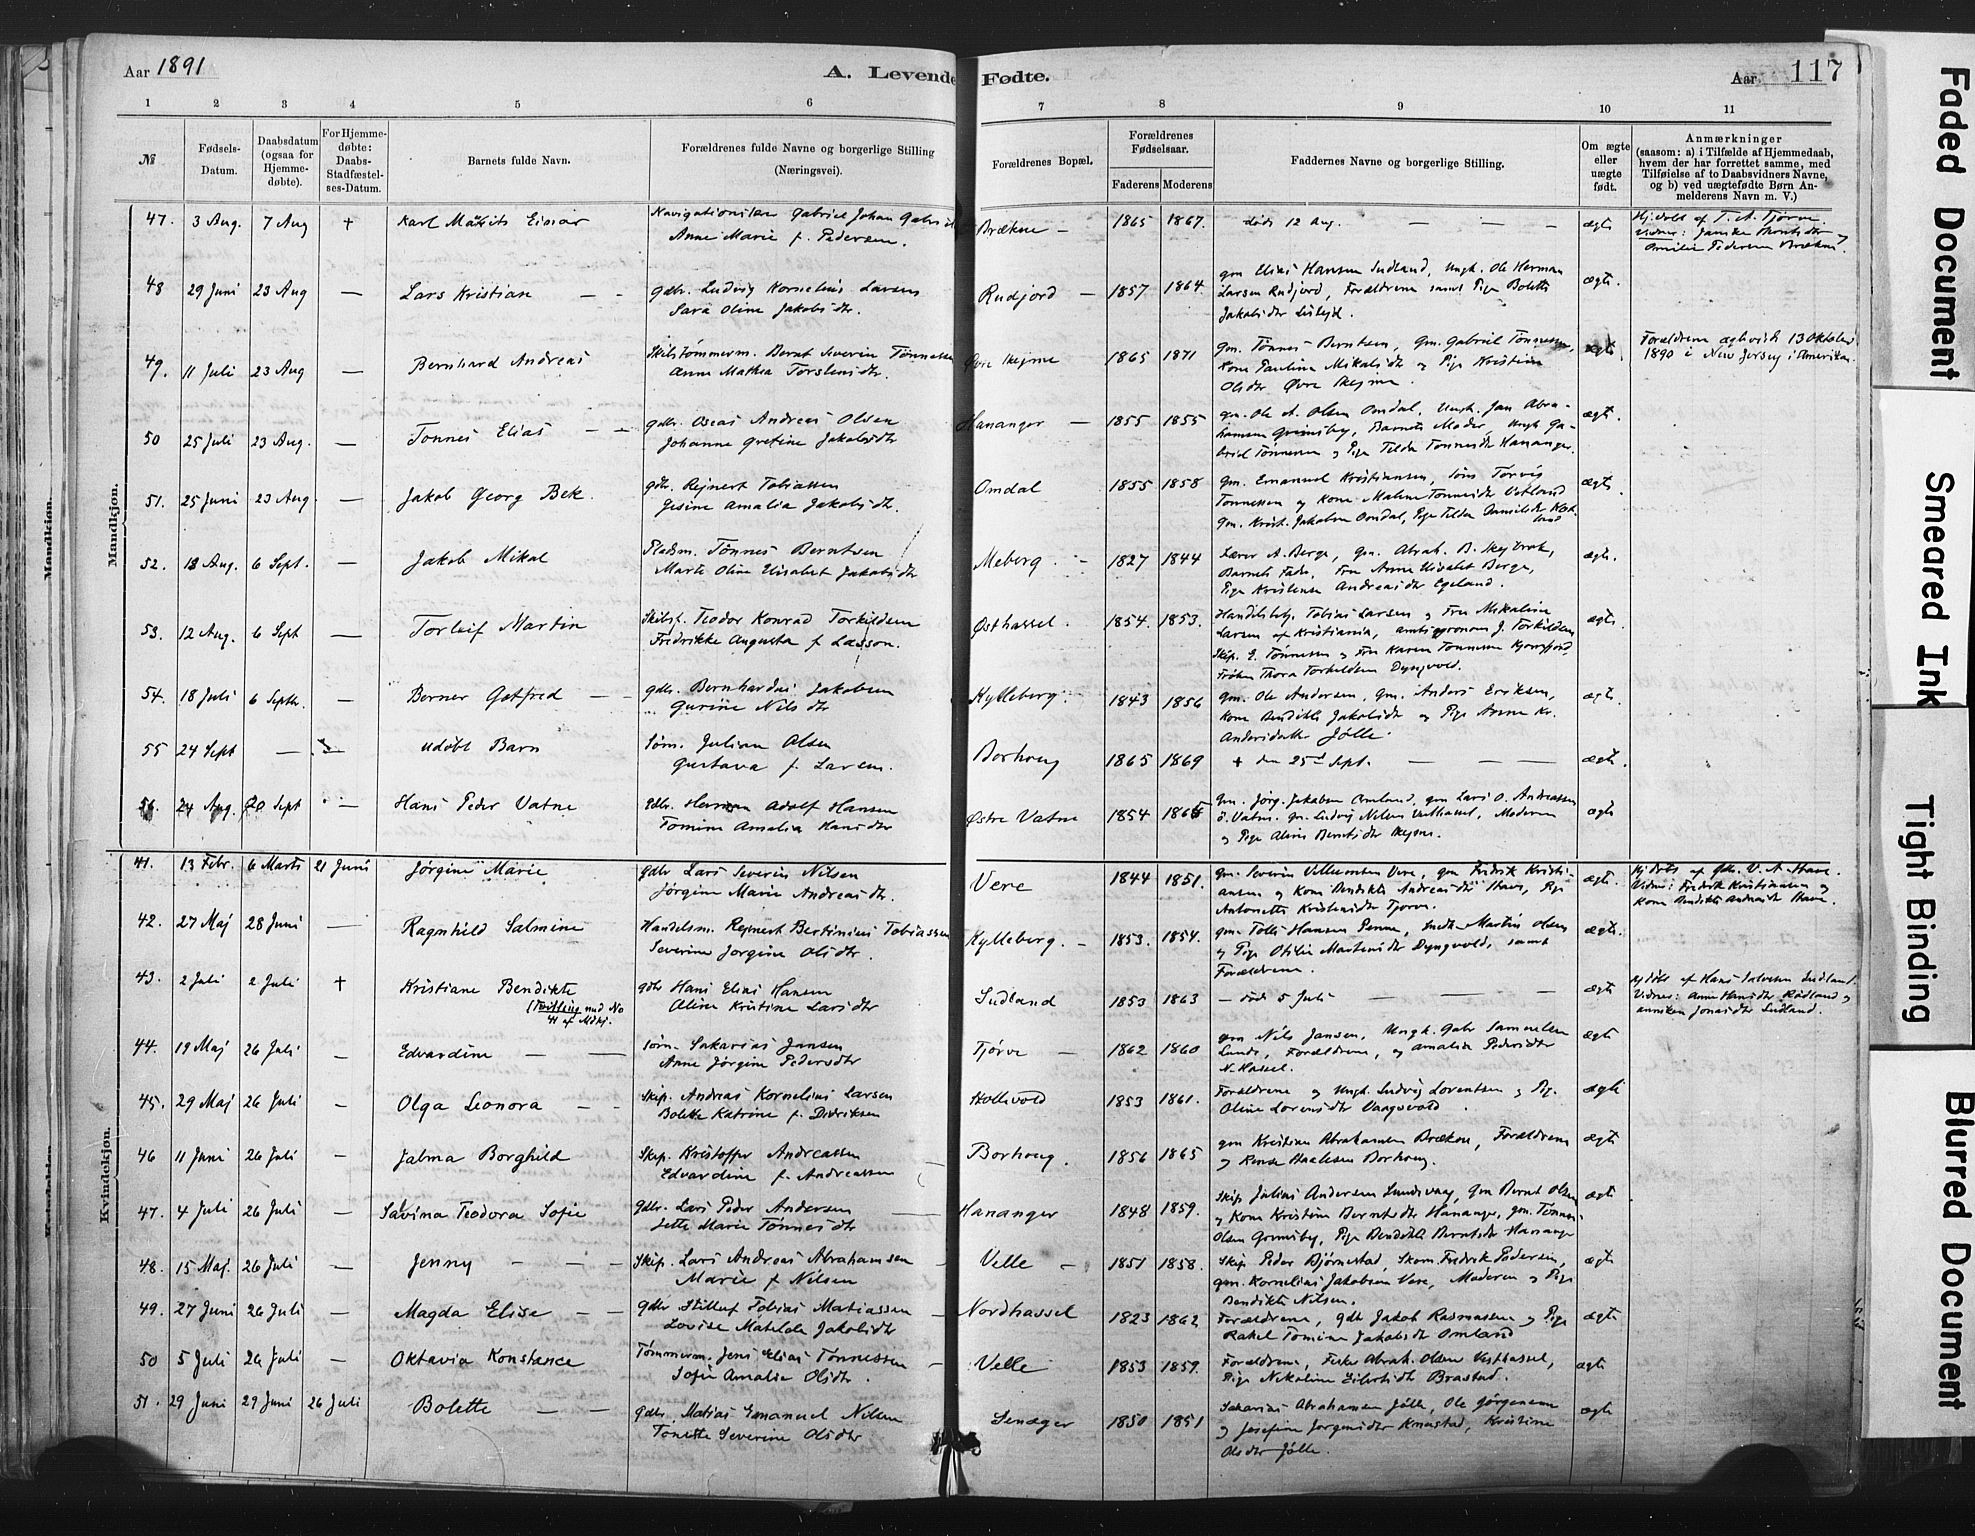 Aar 1891
A. Levende Fødte.
Aar 117
1 2 3 4 5 6 7 8 9 10 11
№
Fødsels-Datum.
Daabsdatum (ogsaa for Hjemme-døbte).
For Hjemme-døbte: Daabs-Stadfæstel-ses-Datum.
Barnets fulde Navn.
Forældrenes fulde Navne og borgerlige Stilling (Næringsvei).
Forældrenes Bopæl.
Forældrenes Fødselsaar.
Faderens Moderens
Faddernes Navne og borgerlige Stilling.
Om ægte eller uægte født.
Anmærkninger
(saasom: a) i Tilfælde af Hjemmedaab,
hvem der har forrettet samme, med
Tilføielse af to Daabsvidners Navne,
og b) ved uægtefødte Børn An-
melderens Navn m. V.)
Mandkjøn.
47. 3 Aug. 7 Aug + Karl Einar Gabriel Johan 1865 1867. døde 12 Aug. — — ægte
Anne Marie f. Pedersen.
48 29 Juni 23 Aug — Lars Kristian — - gdbr. Ludvig Kornelius Larsen Rudjord — 1857 1864 gm Elias Hansen Sudland, Ungk. Ole Herman ægte.
Sara Oline Jakobsdtr. Larsen Rudjord, Forældrene samt Pige Bolette
Jakobsdtr
49. 11 Juli 23 Aug — Bernhard Andreas Bernt Severin Tønnessen Øvre Skejme 1865 1871 gm. Tønnes Berntsen, gm. Gabriel Tønnessen, ægte. Forældrene 13 Oktober
Anne Mathea Torstensdtr. Kone Pauline Mikalsdtr og Pige Kristine 1890 i New Jersey i Amerika.
Olsdtr Øvre Skejme.
50 25 Juli 23 Aug. — Tønnes Elias — - gdbr. Oseas Andreas Olsen Hananger — 1855 1855 gm. Ole A. Olsen Omdal, Ungk. Jan Abra- ægte.
Johanne Gretine Jakobsdtr hamsen Grimsby, Barnets Moder, Ungk Ga-
briel Tønnessen og Pige Tilda Tønnesdtr Hananger.
51. 25 Juni 23 Aug. — Jakob Georg Bek. gdbr. Rejnert Tobiassen Omdal 1855 1858 gm. Emanuel Kristiansen,
Gesine Amalia Jakobsdtr. Tønnessen og Kone Malene Tønnesdtr Vetland
gm. Krist. Jakobsen Omdal, Pige Tilda
52. 18 Aug. 6 Sept. — Jakob Mikal Pladsm. Tønnes Berntsen Meberg. - 1827 1844 Lærer A. Berge, gm. Abrah. B. Skejbrok, ægte.
Marte Oline Elisabet Jakobsdtr Barnets Fader, Fru Anne Elisabet Berge,
Pige Kristense Andreasdtr Egeland.
53. 12 Aug. 6 Sept — Torleif Martin Skibsf. Teodor Konrad Torkildsen Østhassel. 1854. 1853. Tobias Larsen og Fru Mikaline ægte.
Fredrikke Augusta f Larsson. Larsen af Kristiania, J. Torkildsen
Skip. E. Tønnessen og Fru Karen Tønnessen
Frøken Thora Torkildsen Dyngvold.
54. 18 Juli 6 Septbr. — Berner Gotfred — - gdbr. Bernhardus Jakobsen Kylleberg. 1843 1856 gm. Ole Andersen, gm. Anders Eriksen, ægte.
Gurine Nilsdtr Kone Bendikte Jakobsdtr og Pige Anne Kr.
Andersdatter Jølle.
55 24 Sept — udøbt Barn Julian Olsen Borhoug 1865 1869 + den 25de Sept. — — — ægte.
Gustava f. Larsen.
56. 24 Aug. 20 Sept — Hans Peder Vatne gdbr. Herman Adolf Hansen Østre Vatne 1854 1865 gm. Jørg. Jakobsen Omland, gm Lars O. Andreassen ægte
Tomine Amalia Hansdtr Ø. Vatne. gm. Ludvig Nilsen Vesthassel, Moderen
og Pige Berntsdtr Skejme.
Kvindekjøn.
41. 13 Febr. 6 Marts 21 Juni Jørgine Marie gdbr Lars Severin Nilsen Vere 1844 1851. gm. Severin Vere, gm Fredrik Kristi- ægte.
Jørgine Marie Andreasdtr. ansen og Kone Bendikte Andreasdtr Have, Pige Vidner: Fredrik Kristiansen og
Antonette Kristensdtr Tjørve. Kone Bendikte Andreasdtr Have.
42. 27 Maj 28 Juni — Ragnhild Salmine Handelsm. Rejnert Bertinius Tobiassen Kylleberg. — 1853. 1854. gm. Hansen Penne, Martin Olsen ægte.
Severine Jørgine Olsdtr. og Pige Otilie Martensdtr Dyngvold, samt
Forældrene.
43. 2 Juli 2 Juli + Kristiane Bendikte gdbr Hans Elias Hansen Sudland 1853 1863 — død 5 Juli — — — ægte Hjdøbt af Hans Salvesen Sudland.
(Tvilling med No 41 af Mdkj. Aline Kristine Larsdtr Vidner: Anne Hansdtr Rødland og
Jonasdtr Sudland.
44. 19 Maj 26 Juli - Edvardine — — Sakarias Jansen Tjørve — 1862 1860 gm Nils Jansen, Ungk. Gabr Samuelsen ægte
Anne Jørgine Pedersdtr Lunde, Forældrene, og Amalia Pedersdtr
N. Hassel.
45. 29 Maj 26 Juli - Olga Leonora — - Skip. Andreas Kornelius Larsen 1853 1861. Forældrene og Ungk. Ludvig Lorentsen og Pig. ægte
Bolette Katrine f. Didriksen Oline Lorensdtr Vaagsvold.
46 11 Juni 26 Juli - Jalma Borghild Skip. Kristoffer Andreassen Borhoug. 1856 1865 gm Kristian Abrahamsen Brækne, Forældrene ægte
Edvardine f. Andreassen og Borhoug.
47. 4 Juli 26 Juli — Savina Teodora Sofie gdbr. Lars Peder Andersen Hananger 1848 1859. Skip Julius Andersen Lundevaag, gm Bernt Olsen ægte
Jette Marie Tønnesdtr og Kone Kristine Berntsdtr Hananger, gm. Tønnes
Olsen Grimsby, Pige Bendikte Berntsdtr Hananger
48. 15 Maj. 26 Juli — Jenny - - - Skip. Lars Andreas Abrahamsen Velle — 1851 1858. Skip Peder Bjørnestad, Skom. Fredrik Pedersen, ægte
Marie f Nilsen gm. Kornelius Jakobsen Vere, Moderen og Pige
Bendikte Nilsen.
49. 27 Juni 26 Juli — Magda Elise — - gdbr Tobias Matiassen Nordhassel 1823 1862 Forældrene, gdbr Jakob Rasmussen og Pige ægte
Lovise Matilde Jakobsdtr Rakel Tomine Jakobsdtr Omland
50 5 Juli 26 Juli — Oktavia Konstance Tømmerm. Jens Elias Tønnessen Velle 1853 1859. Forældrene, Fisker Abrah. Olsen Vesthassel, ægte
Sofie Amalia Olsdtr. Pige Nikoline Eilertsdtr Brastad.
51. 29 Juni 29 Juni 26 Juli Bolette — - gdbr. Matias Emanuel Nilsen 1850 1851 Sakarias Abrahamsen Jølle, Ole Jørgensen ægte
Tonette Severine Olsdtr og Josefine Jørgensdtr, Kristine
Olsdtr Jølle.
Faded Document
Smeared Ink
Tight Binding
Blurred Document